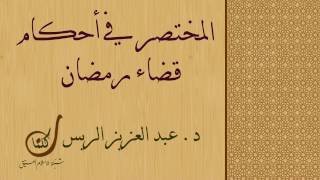 المختصر في أحكام
قضاء رمضان
د. عبد العزيز الريس